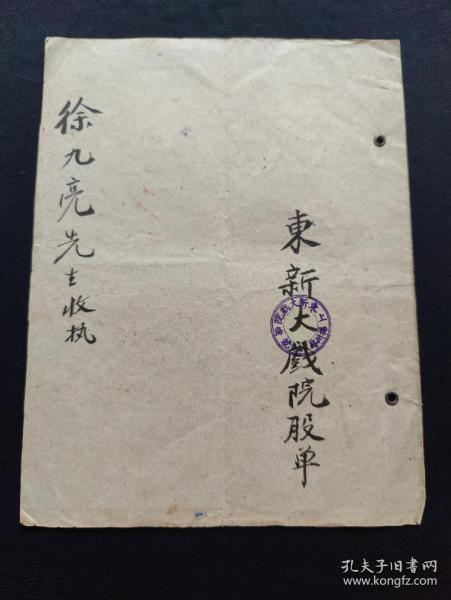 東新大戲院股单
徐九亮先生收执
孔夫子旧书网
www.kongfz.com